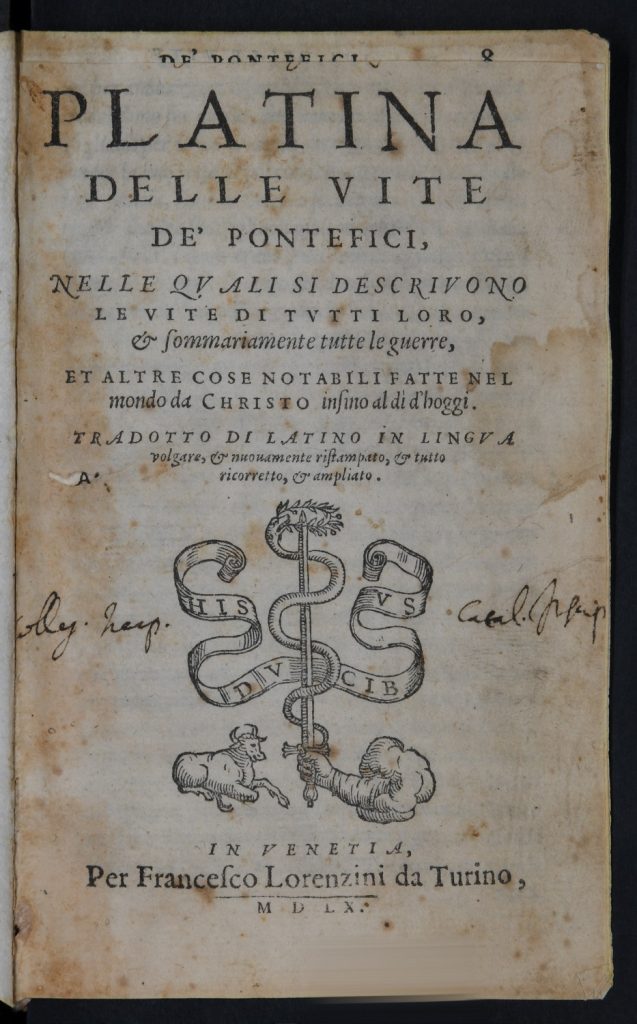 DE' PONTEFICI 8
PLATINA
DELLE VITE
DE' PONTEFICI,
NELLE QVALI SI DESCRIVONO
LE VITE DI TVTTI LORO,
& ſommariamente tutte le guerre,
ET ALTRE COSE NOTABILI FATTE NEL
mondo da CHRISTO inſino al dì d'hoggi.
TRADOTTO DI LATINO IN LINGVA
volgare, & nuouamente riſtampato, & tutto
ricorretto, & ampliato.
A
HIS VS
DV CIB
IN VENETIA,
Per Franceſco Lorenzini da Turino,
M D LX.